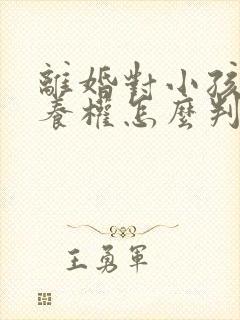 離婚對小孩
養權怎麼判
王勇軍